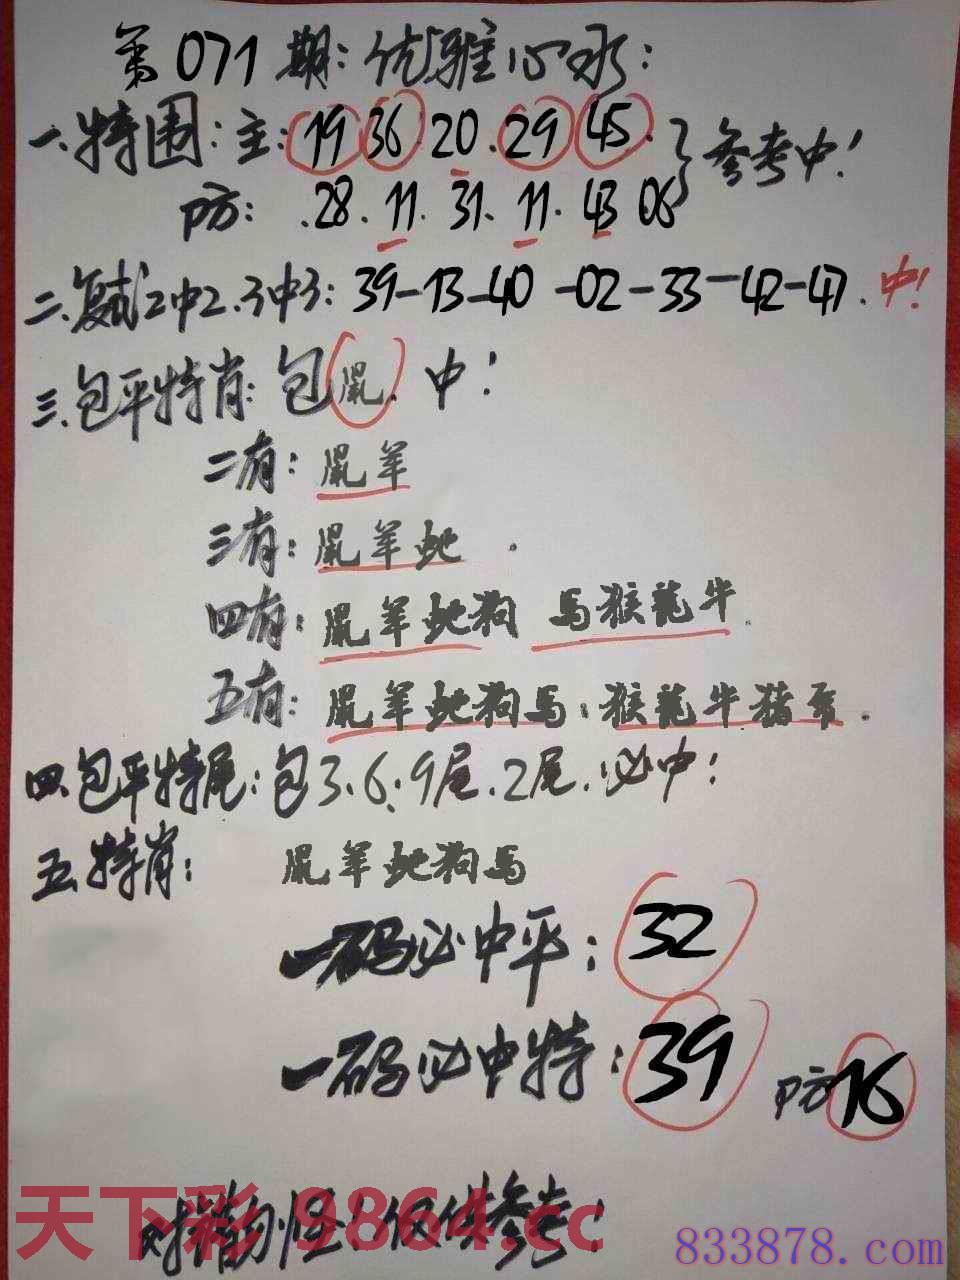 第071期:优雅心水:
一.特围:主:19 36 20.29 45.}参考中!
防:.28.11.31.11.43 06
二.复试2中2.3中3:39-13-40-02-33-42-47.中!
三.包平特肖:包鼠.中!
二有:鼠羊
三有:鼠羊蛇.
四有:鼠羊蛇狗 马猴龍牛.
五有:鼠羊蛇狗马:猴龍牛猪兔.
四.包平特尾:包3.6.9尾.2尾.必中!
五.特肖: 鼠羊蛇狗马
一码必中平:32
一码必中特:39 防16
对猜勿怪!仅供参考!
天下彩 9864.cc
833878.com